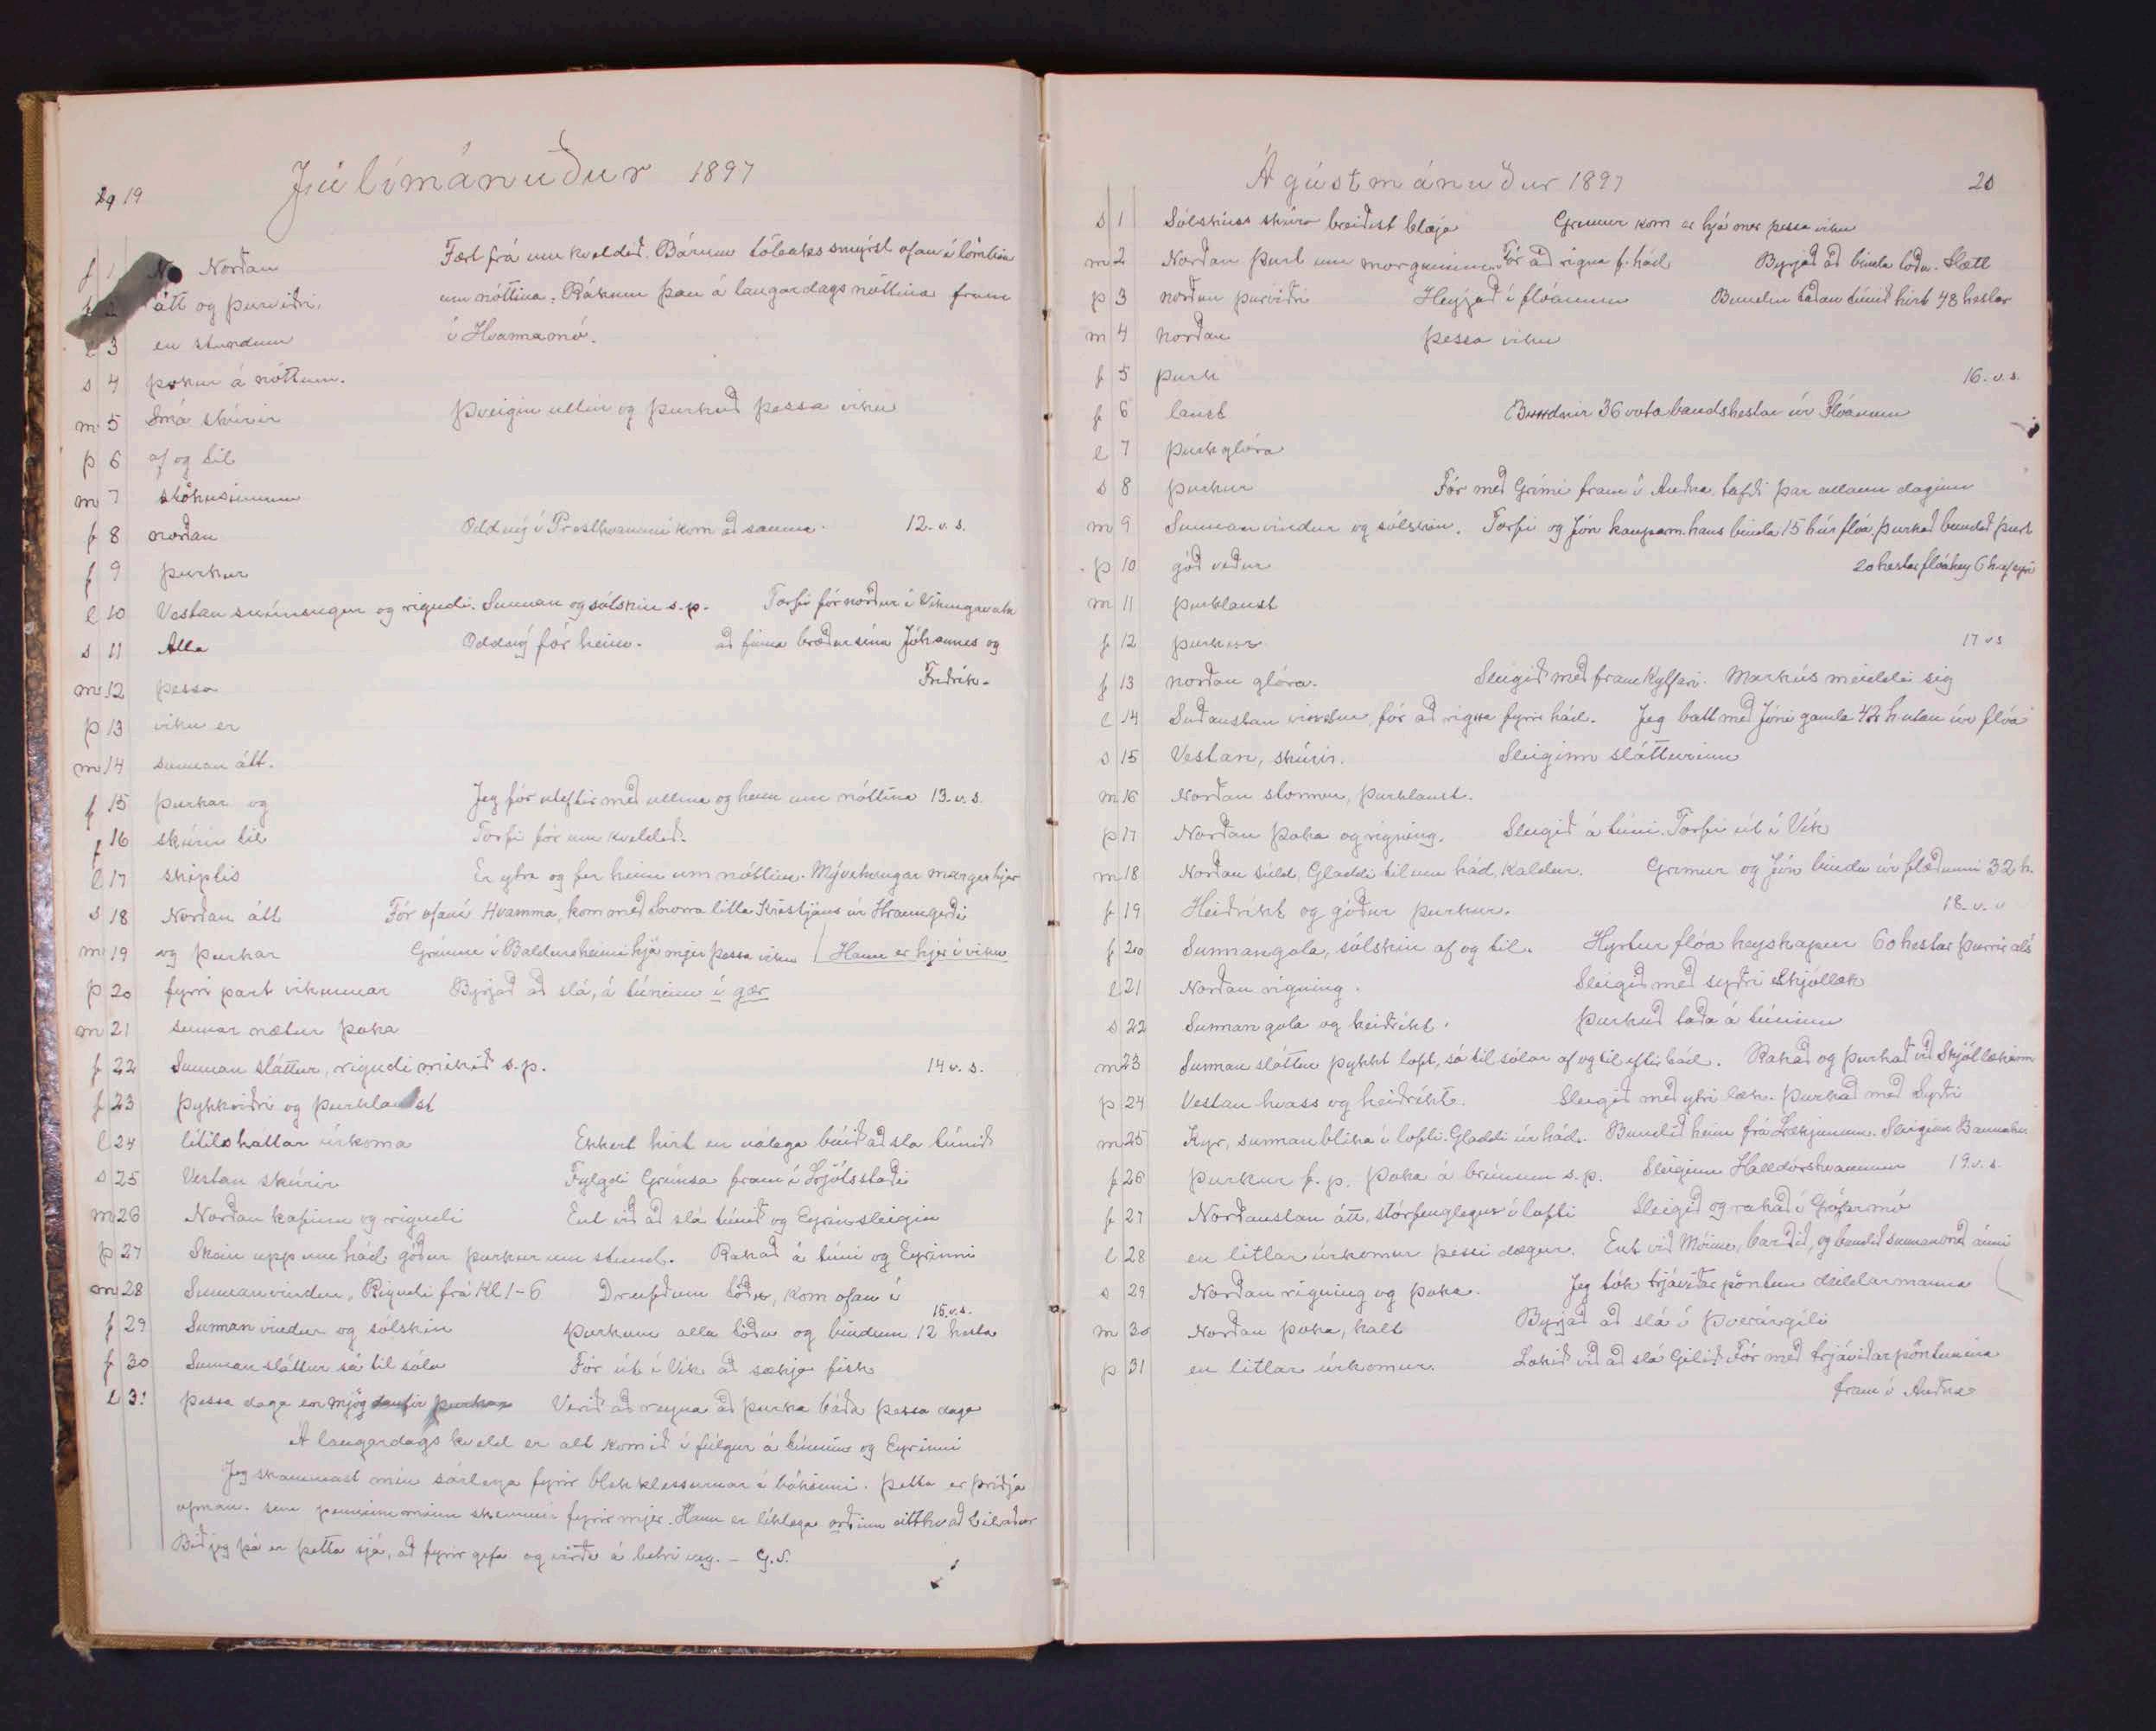 19
Júlímánuður 1897
f 1 Norðan Fært frá um kveldið. Bárum tóbaks smyrsl ofan í lömbin
2 átt og þurviðri um nóttina. Rákum þau á laugardags nóttina fram
l 3 en stundum í Hvammamó.
s 4 þokur á nóttum.
m 5 Smá skúrir Þvegin ullin og þurkuð þessa viku
þ 6 af og til
m 7
f 8 norðan Oddný í Presthvammi kom að sauma. 12. v. s.
f 9 þurkur
l 10 Vestan og rigndi. Sunnan og sólskin s.p. Torfi fór norður í Víkingavatn
s 11 Alla Oddný fór heim. að finna bræður sína Jóhannes og
m 12 þessa Friðrik.
þ 13 viku er
m 14 sunnan átt.
f 15 þurkar og Jeg fór með ullina og heim um nóttina 13. v. s.
f 16 skúrir til Torfi fór um kveldið.
l 17 skiptis Er ytra og fer heim um nóttina. Mývetningar margir hjer
s 18 Norðan átt Fór ofaní Hvamma, kom með Snorra litla Kristjáns úr Hraungerði
m 19 og þurkar Grímur í Baldursheimi hjá mjer þessa viku Hann er hjer í viku
þ 20 fyrri part vikunnar Byrjað að slá, á túninu í gær
m 21 sumar nætur þoka
f 22 Sunnan sláttur, rigndi mikið s.p. 14 v. s.
f 23 Þykkviðri og þurklaust
l 24 lítilsháttar úrkoma Ekkert hirt en nálega búið að sla túnið
s 25 Vestan skúrir Fylgdi Grímsa fram í Ljótsstaði
m 26 Norðan kafinn og rigndi Ent við að slá túnið og Eyrin slegin
þ 27 Skein upp um hád. góður þurkur um stund. Rakað á túni og Eyrinni
m 28 Sunnanvindur, Rigndi frá Kl 1-6 Dreifðum töðu, kom ofan í
15. v. s.
f 29 Sunnan vindur og sólskin Þurkum alla töðu og bindum 12 hesta
f 30 Sunnan sláttur sá til sólu Fór út í Vík að sækja fisk
l 31 þessa daga en mjög daufir þurkar Verið að reyna að þurka báða þessa daga
Á laugardags kveld er alt komið í fúlgur á túninu og Eyrinni
Jeg skammast mín sárlega fyrir blekklessurnar í bókinni. Þetta er þriðja
opnan. sem penninn minn skemmir fyrir mjer. Hann er líklega orðinn eitthvað bilaður
Bið jeg þá er þetta sjá, að fyrirgefa og virða á betri veg. - G.S.
Ágústmánuður 1897 20
s 1 Sólskins skúrir breiðist blæja Grímur kom er hjá mer þessa viku
m 2 Norðan þurt um morguninn Fór að rigna f. hád Byrjað að binda töðu. Hætt
þ 3 norðan þurviðri Heyjað í flóanum Bundin taðan túnið hirt 48 hestar
m 4 norðan þessa viku
f 5 þurk 16. v. s.
f 6 laust Bundnir 36 votabandshestar úr Flóanum
l 7 þurkglóra
s 8 þurkur Fór með Grími fram í Auðna. tafði þar allann daginn
m 9 Sunnan vindur og sólskin. Torfi og Jón kaupam. hans binda 15 h úr flóa. þurkað bundið þurt
þ 10 góð veður 20 hestar flóahey 6 h af eyri
m 11 þurklaust
f 12 þurkur 17 v s
f 13 norðan glóra. Slegið með fram Kylfari. Markús meiddi sig
l 14 Suðaustan vindur, fór að rigna fyrir hád. Jeg batt með Jóni gamla 42 h utan úr flóa
s 15 Vestan, skúrir. Sleginn slátturinn
m 16 Norðan stormur, þurklaust.
þ 17 Norðan þoka og rigning. Slegið á túni. Torfi út í Vík
m 18 Norðan súld, Gladdi til um hád. Kaldur. Grímur og Jón bindu úr flæðunni 32 h.
f 19 Heiðríkt og góður þurkur. 18. v. s
f 20 Sunnangola, sólskin af og til. Hyrtur flóa heyskapur 60 hestar þurrir als
l 21 Norðan rigning. Slegið með syðri Skjóllæk
s 22 Sunnan gola og heiðríkt. Þurkuð taða á túninu
m 23 Sunnan sláttur þykkt loft, sá til sólar af og til eftir hád. Rakað og þurkað við Skjóllækinn
þ 24 Vestan hvass og heiðríkt. Slegið með ytri læk. Þurkað með Syðri
m 25 Kyr, sunnan blika í lofti. Gladdi úr hád. Bundið heim frá Lækjunum.
f 26 Þurkur f. p. Þoka á brúnum s. p. Sleginn Halldórshvammur 19. v. s.
f 27 Norðaustan átt, stórfenglegur í lofti Slegið og rakað í Grófarmó
l 28 en litlar úrkomur þessi dægur. Ent við Móinn, barðið, og bundið sunnan með ánni
s 29 Norðan rigning og þoka. Jeg tók trjáviðar pöntun deildarmanna
m 30 Norðan þoka, kalt Byrjað að slá í Þverárgili
þ 31 en litlar úrkomur. Lokið við að slá Gilið. Fór með trjáviðarpöntunina
fram í Auðna